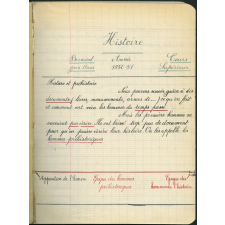 Histoire
Devoirs
pour Mars
Année
1950-51
Cours
Supérieur
Histoire et préhistoire
Nous pouvons savoir grâce à des
documents: livres, monuments, armes de
et comment ont vécu les hommes du temps passé
Mais les premiers hommes ne
savaient pas écrire. Ils ont laissé trop peu de documents
pour qu'on puisse écrire leur histoire. On les appelle les
hommes préhistoriques
Apparition de l'homme
Epoque des hommes
préhistoriques
Epoque des
hommes de l'histoire